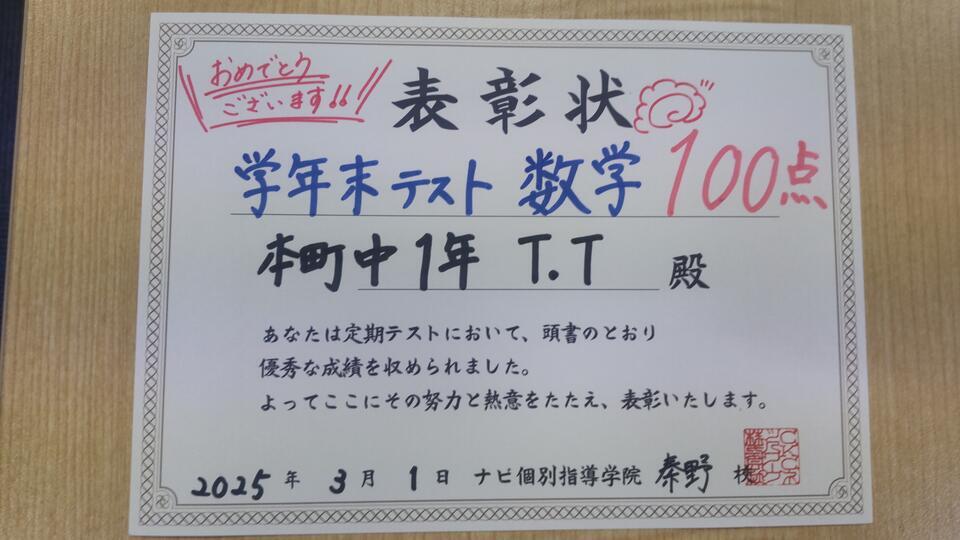 おめでとう
ございます!!
表彰状
学年末テスト 数学 100点
本町中1年 T.T 殿
あなたは定期テストにおいて、頭書のとおり
優秀な成績を収められました。
よってここにその努力と熱意をたたえ、表彰いたします。
2025年 3月 1日 ナビ個別指導学院 秦野 校